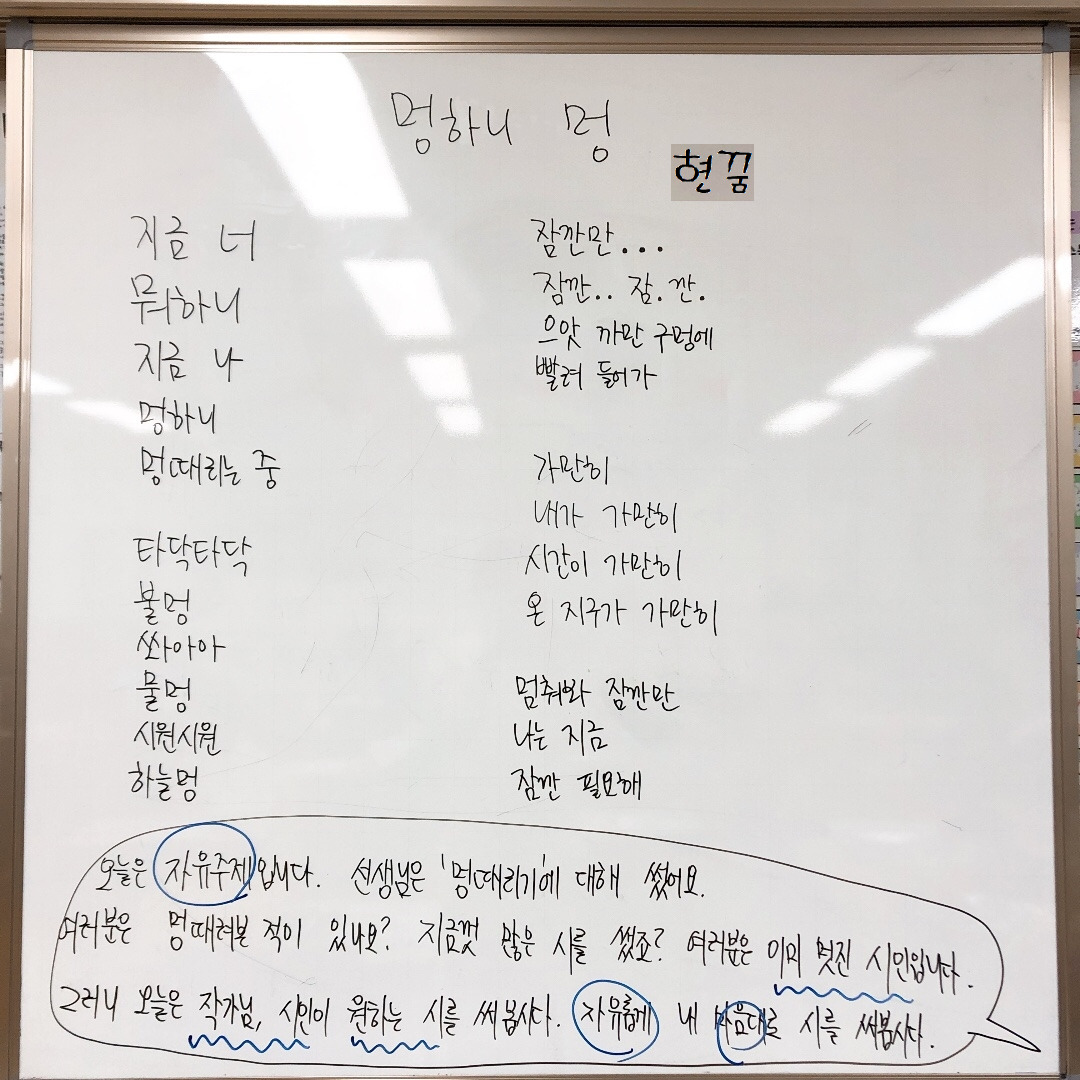 멍하니 멍
현꿈
지금 너
뭐하니
지금 나
멍하니
멍때리는 중
타닥타닥
불멍
쏴아아
물멍
시원시원
하늘멍
잠깐만...
잠깐.. 잠.깐.
으앗 까만 구멍에
빨려 들어가
가만히
내가 가만히
시간이 가만히
온 지구가 가만히
멈춰봐 잠깐만
나는 지금
잠깐 필요해
오늘은 자유주제입니다. 선생님은 '멍때리기'에 대해 썼어요.
여러분은 멍때려본 적이 있나요? 지금껏 많은 시를 썼죠? 여러분은 이미 멋진 시인입니다.
그러니 오늘은 작가님, 시인이 원하는 시를 써 봅시다. 자유롭게 내 마음대로 시를 써봅시다.